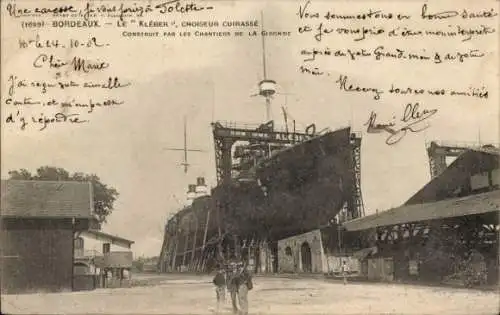 Une caresse, s'il vous plaît à Jolette
(1693) - BORDEAUX. - LE "KLÉBER", CROISEUR CUIRASSÉ
CONSTRUIT PAR LES CHANTIERS DE LA GIRONDE
le 24.10.02
Chère Marie
J'ai reçu ton aimable
carte, et m'empresse
d'y répondre
Nous sommes tous en bonne santé
et je vous prie d'être mon interprète
auprès de votre Grand mère & de votre
mère
Recevez toutes nos amitiés